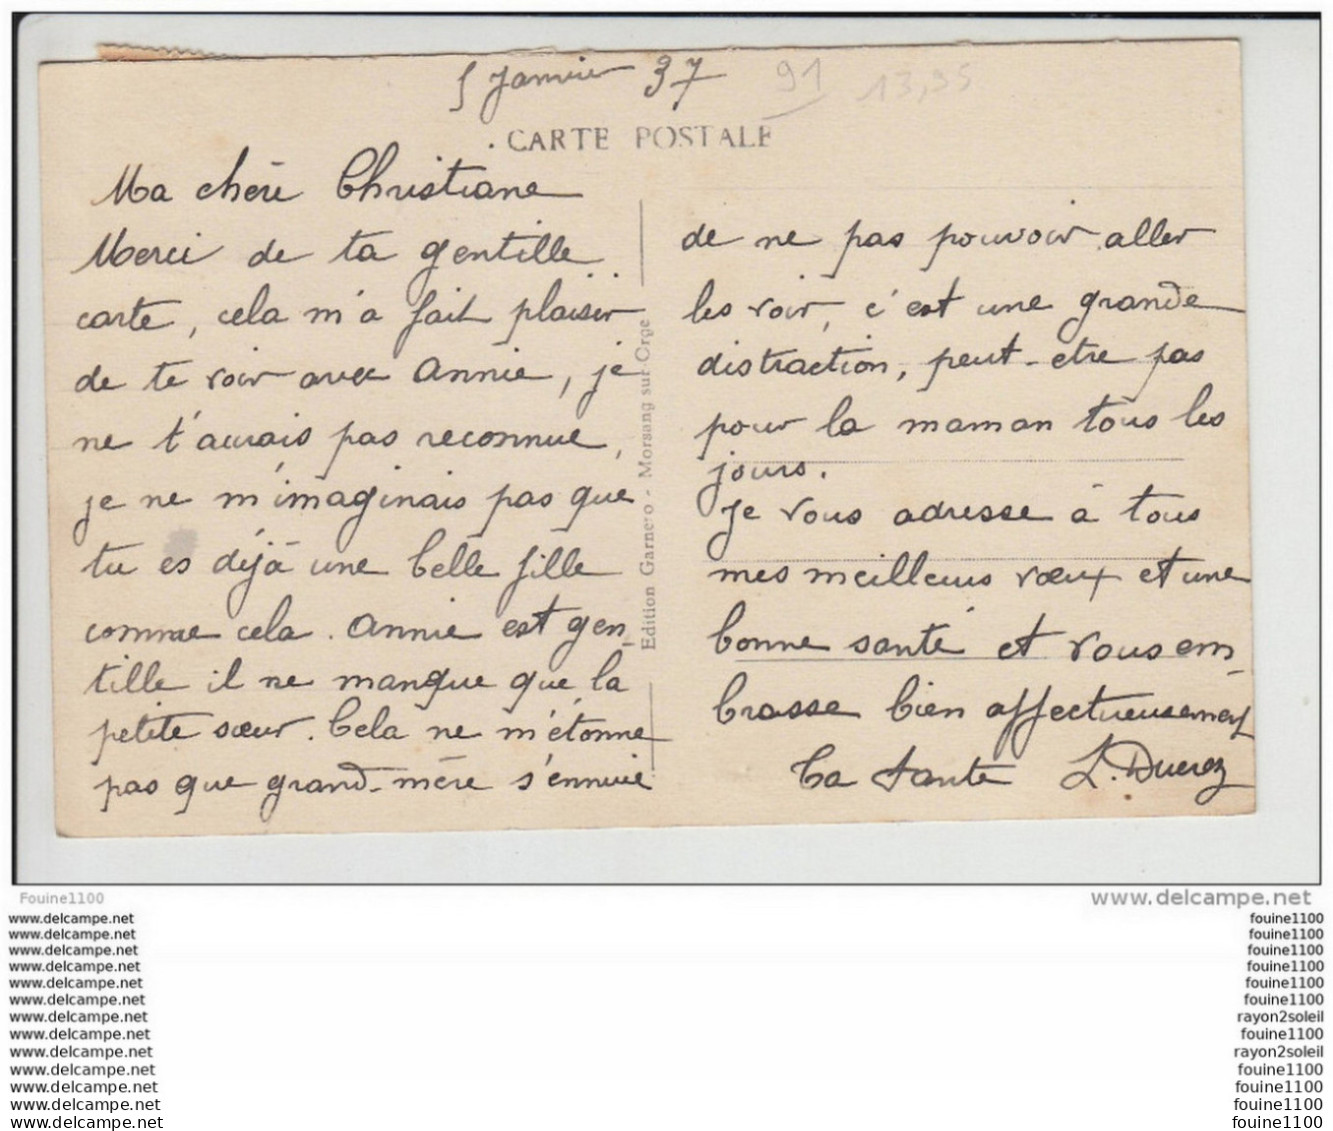 5 Janvier 37
91
13,95
CARTE POSTALE
Ma chère Christiane
Merci de ta gentille
carte, cela m'a fait plaisir
de te voir avec Annie, je
ne t'aurais pas reconnue,
je ne m'imaginais pas que
tu es déjà une belle fille
comme cela. Annie est gen-
tille il ne manque que la
petite sœur. Cela ne m'étonne
pas que grand-mère s'ennuie
Edition Garnero - Morsang sur-Orge
de ne pas pouvoir aller
les voir, c'est une grande
distraction, peut-etre pas
pour la maman tous les
jours.
Je vous adresse à tous
mes meilleurs vœux et une
bonne santé et vous em-
brasse bien affectueusement
Ta tante L. Duerez
Fouine1100
www.delcampe.net
www.delcampe.net fouine1100
www.delcampe.net fouine1100
www.delcampe.net fouine1100
www.delcampe.net fouine1100
www.delcampe.net fouine1100
www.delcampe.net fouine1100
www.delcampe.net rayon2soleil
www.delcampe.net fouine1100
www.delcampe.net rayon2soleil
www.delcampe.net fouine1100
www.delcampe.net fouine1100
www.delcampe.net fouine1100
www.delcampe.net fouine1100